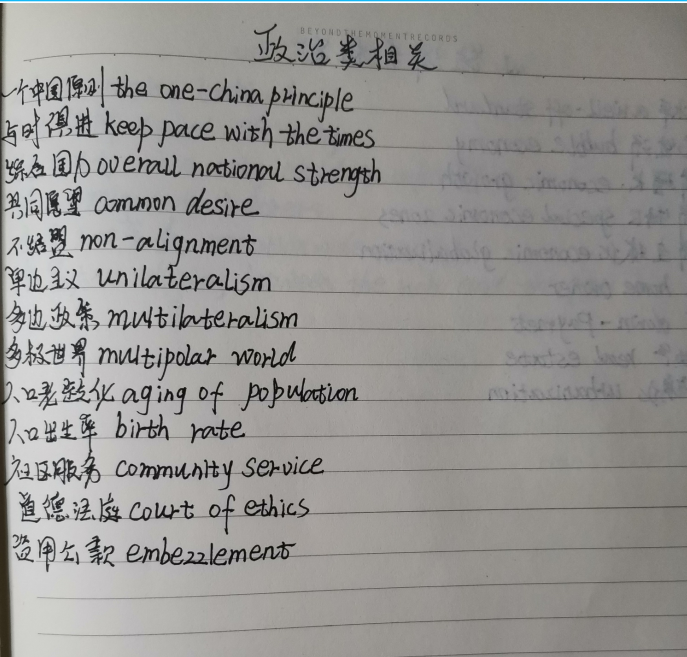 BEYONDTHEMOMENTRECORDS
政治类相关
一个中国原则 the one-china principle
与时俱进 keep pace with the times
综合国力 overall national strength
共同愿望 common desire
不结盟 non-alignment
单边主义 unilateralism
多边政策 multilateralism
多极世界 multipolar world
人口老龄化 aging of population
人口出生率 birth rate
社区服务 community service
道德法庭 court of ethics
盗用公款 embezzlement